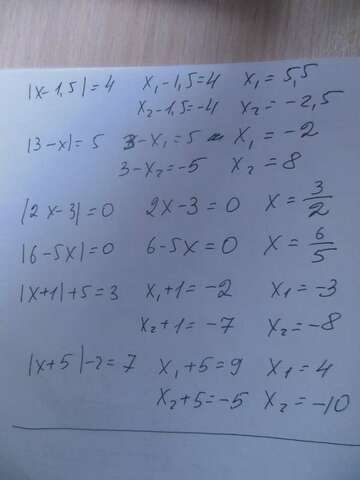 |x-1,5|=4 x₁-1,5=4 x₁=5,5
x₂-1,5=-4 x₂=-2,5
|3-x|=5 3-x₁=5 x₁=-2
3-x₂=-5 x₂=8
|2x-3|=0 2x-3=0 x=3/2
|6-5x|=0 6-5x=0 x=6/5
|x+1|+5=3 x₁+1=-2 x₁=-3
x₂+1=-7 x₂=-8
|x+5|-2=7 x₁+5=9 x₁=4
x₂+5=-5 x₂=-10